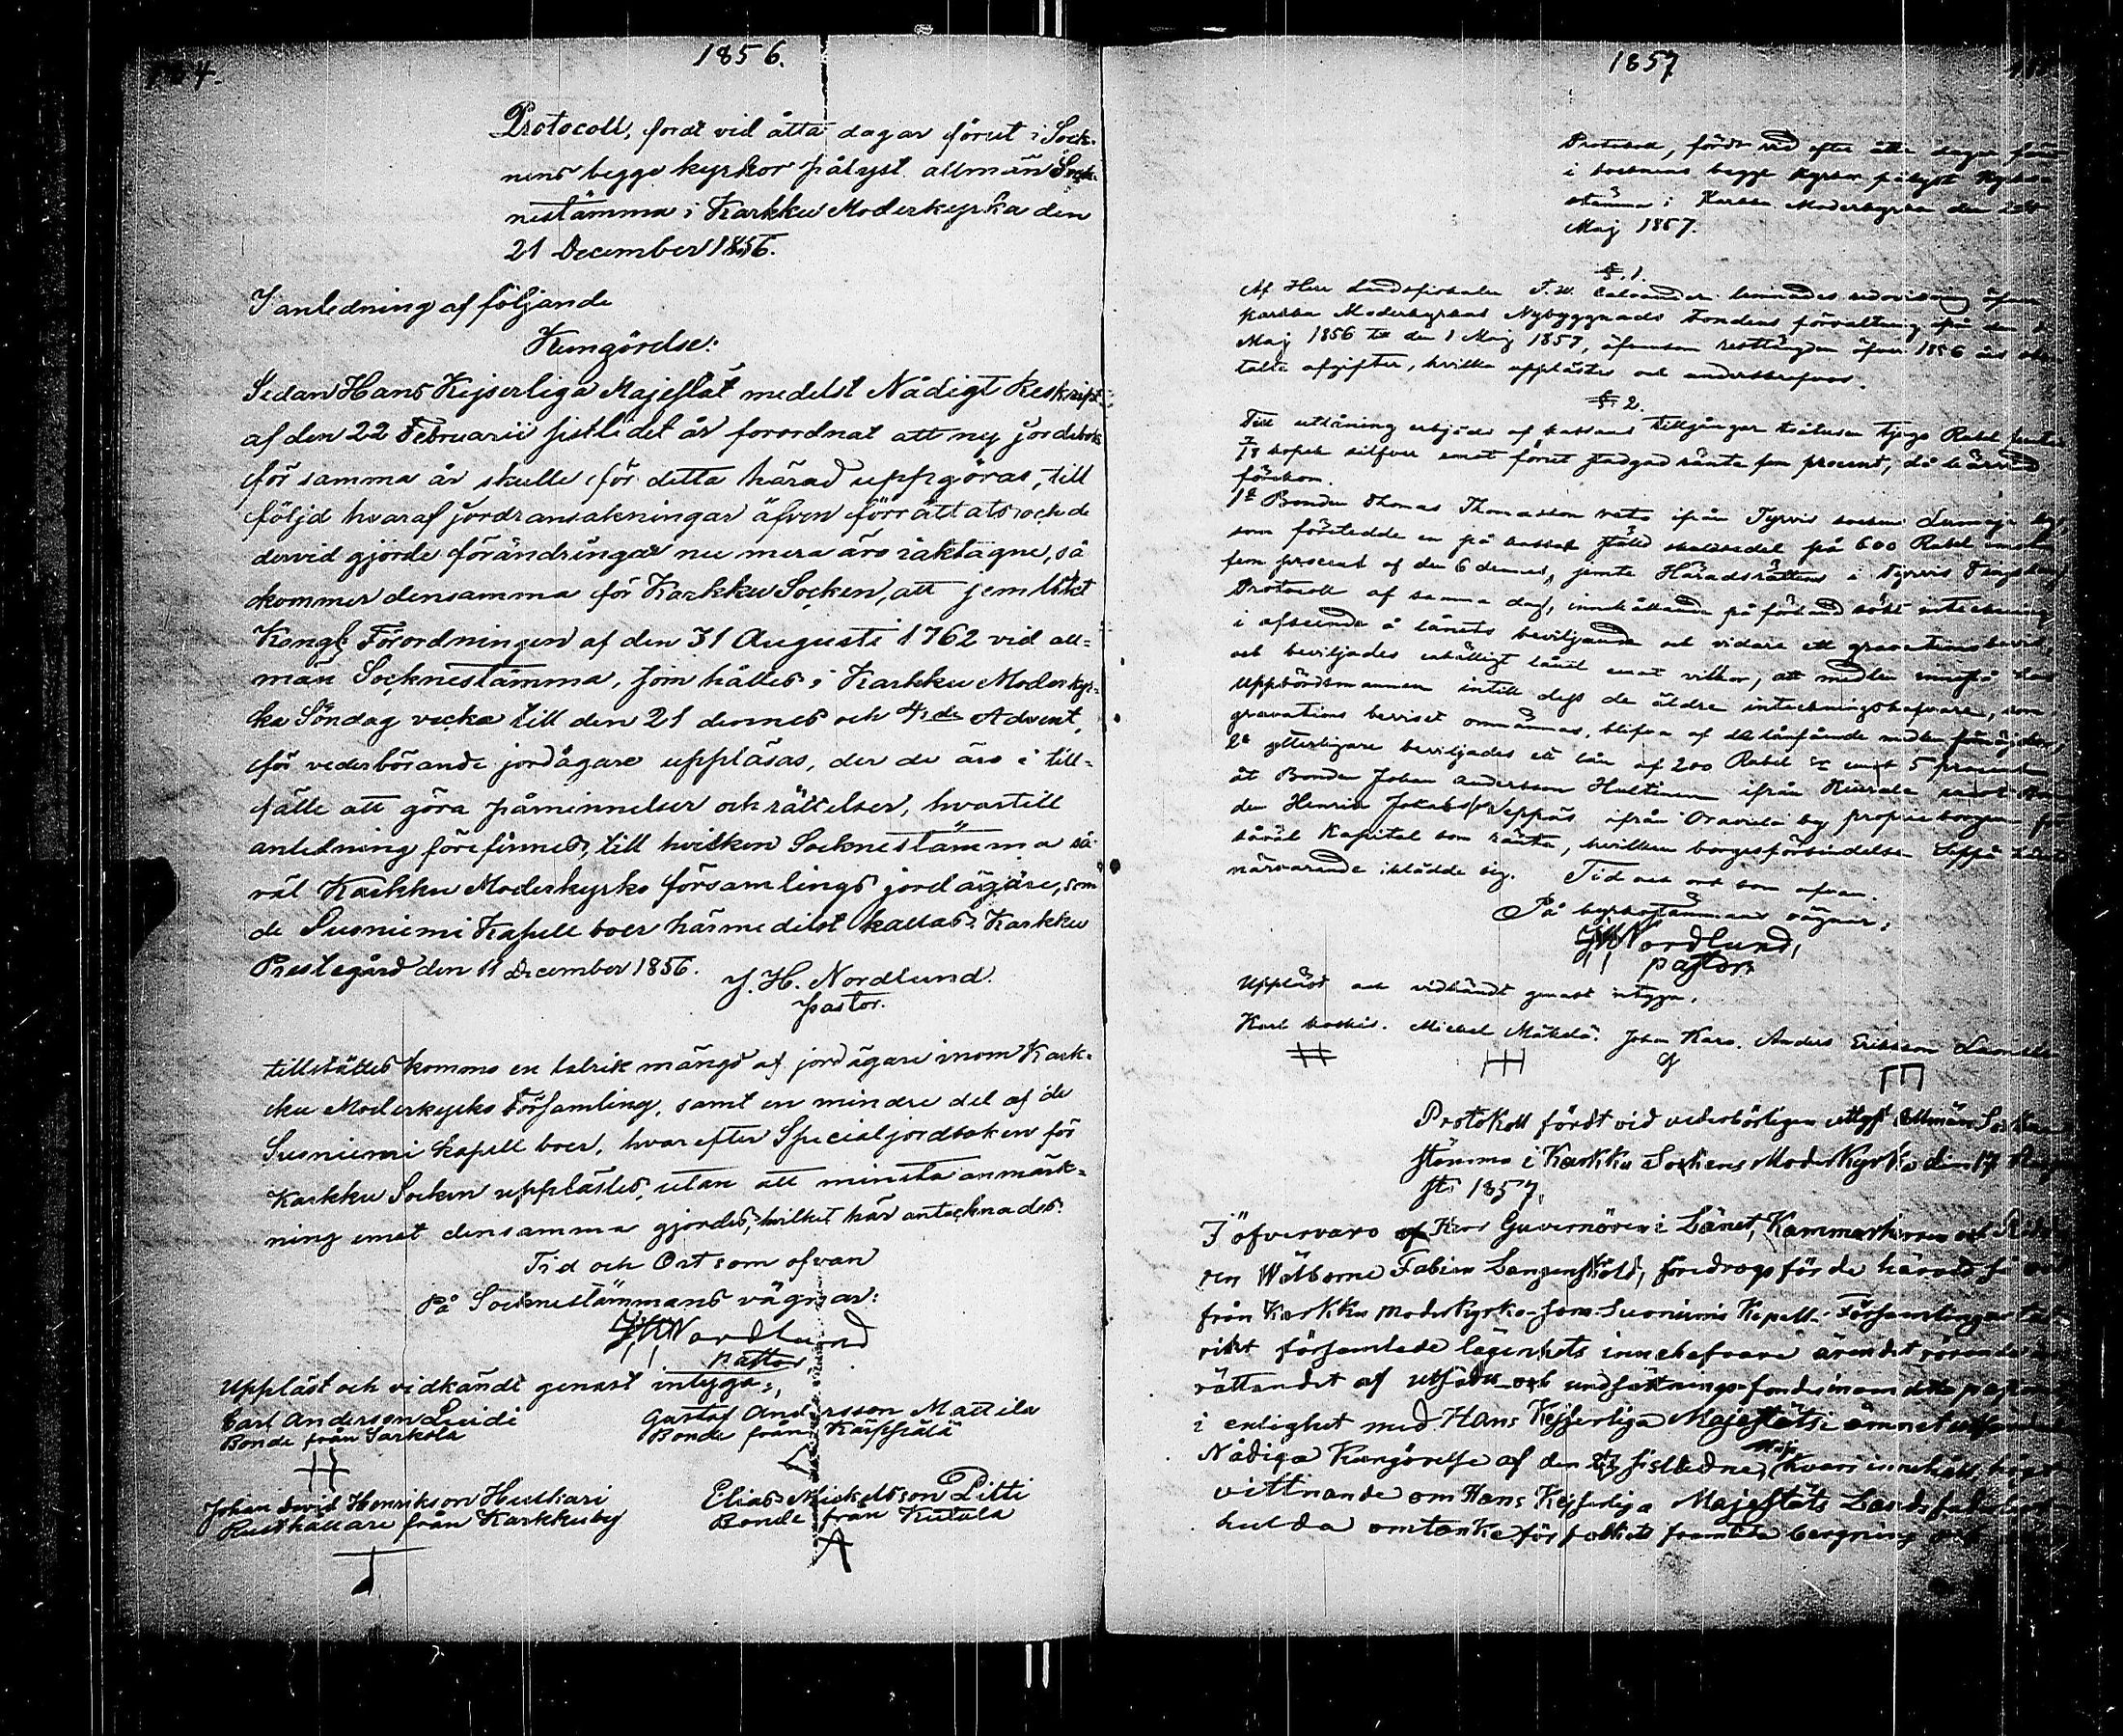 1856.
Protocoll, fördt vid åtta dagar förut i Sock-
nens begge kyrkor pålyst allmän Sock-
nestämma i Karkku Moderkyrka den
21 December 1856.
I anledning af följande
Kungörelse:
Sedan Hans Kejserliga Majestät medelst Nådigt Reskript
af den 22 Februarii sistlidet år förordnat att ny jordebok
för samma år skulle för detta härad uppgöras, till
följd hvaraf jordransakningar äfven förrättats och de
dervid gjorde förändringar nu mera äro iakttagne, så
kommer densamma för Karkku Socken, att jemlikt
Kongl. Förordningen af den 31 Augusti 1762 vid all-
män Socknestämma, som hålles i Karkku Moderkyr-
ka Söndag vecka till den 21 dennes och 4de Advent,
för vederbörande jordägare uppläsas, der de äro i till-
fälle att göra påminnelser och rättelser, hvartill
anledning förefinnes, till hvilken Socknestämma så-
väl Karkku Moderkyrko församlings jordägare, som
de Suoniemi Kapell boer härmedelst kallas. Karkku
Prestegård den 11 December 1856.
J. H. Nordlund.
pastor.
tillstädes kommo en talrik mängd af jordägare inom Kark-
ku Moderkyrko Församling, samt en mindre del af de
Suoniemi kapell boer, hvarefter Specialjordboken för
Karkku Socken upplästes, utan att minsta anmärk-
ning emot densamma gjordes, hvilket här antecknades.
Tid och Ort som ofvan
På Socknestämmans vägnar:
JHNordlund
pastor
Uppläst och vidkändt genast intyga:,
Carl Anderson Luidi
Bonde från Sarkola
Gustaf Andersson Mattila
Bonde från Käppälä
Johan David Henrikson Hulkari
Rusthållare från Karkkuby
Elias Mickelsson Pitti
Bonde från Kutala
1857
Protokoll, fördt vid efter åtta dagar förut
i socknens begge kyrkor pålyst Kyrko-
stämma i Karkku Moderkyrka den
Maj 1857.
§. 1.
Af Herr Landsfiskalen lemnades redovisning öfver
Karkku Moderkyrkas Nybyggnads Fondens förvaltning ifrån den
Maj 1856 till den 1 Maj 1857, äfvensom restlängden öfver 1856 års
talte afgifter, hvilka upplästes och underskrefvos.
§. 2.
Till utlåning erbjöds af kassans tillgångar Rubel
kopek silfver emot förut stadgad ränta fem procent, då härvid
förekom.
Bonden Thomas Thomasson ifrån Tyrvis socken
som företedde en på kassan ställd skuldsedel på 600 Rubel
fem procent af den 6 dennes, jemte Häradsrättens i Tyrvis
Protocoll af samma dag, innehållande på förhand sökt inteckning
i afseende å lånets beviljande och vidare ett gravationsbevis,
och beviljades lånet emot vilkor, att medlen
Uppbördsmannen intill dess de äldre inteckningshafvare, som
gravations beviset omnämnas, blifva af medlen
ytterligare beviljades ett lån af 200 Rubel 5 procent
åt Bonden Johan Andersson Hultinen ifrån
den Henrik Jakobs Seppäs ifrån Oravala by proprieborgen för
såväl Kapital som ränta, hvilken borgesförbindelse Seppä
närvarande iklädde sig. Tid och ort som ofvan.
På kyrkostämmans vägnar:
JHNordlund,
pastor
Uppläst och vidkändt genast intyga.
Karl Michel Mäkelä. Johan Anders Eriksson
Protokoll fördt vid vederbörligen utlyst Allmän Sockne
stämma i Karkku Sockens Moderkyrka den 17
sti 1857.
I öfvervaro af Herr Guvernören i Länet, Kammarherren och
ren Wälborne Fabian Langenskiöld, föredrogs för de härvid
från Karkku moderkyrko- som Suoniemi Kapell-Församlingar
rikt församlade lägenhets innehafvare ärendet rörande
rättandet af utsädes och undsättnings-fonds inom detta
i enlighet med Hans Kejserliga Majestäts i ämnet
Nådiga Kungörelse af den sistledne Maj, hvars innehåll,
vittnande om Hans Kejserliga Majestäts Landsfaderliga
hulda omtanke för folkets framtida bergning och